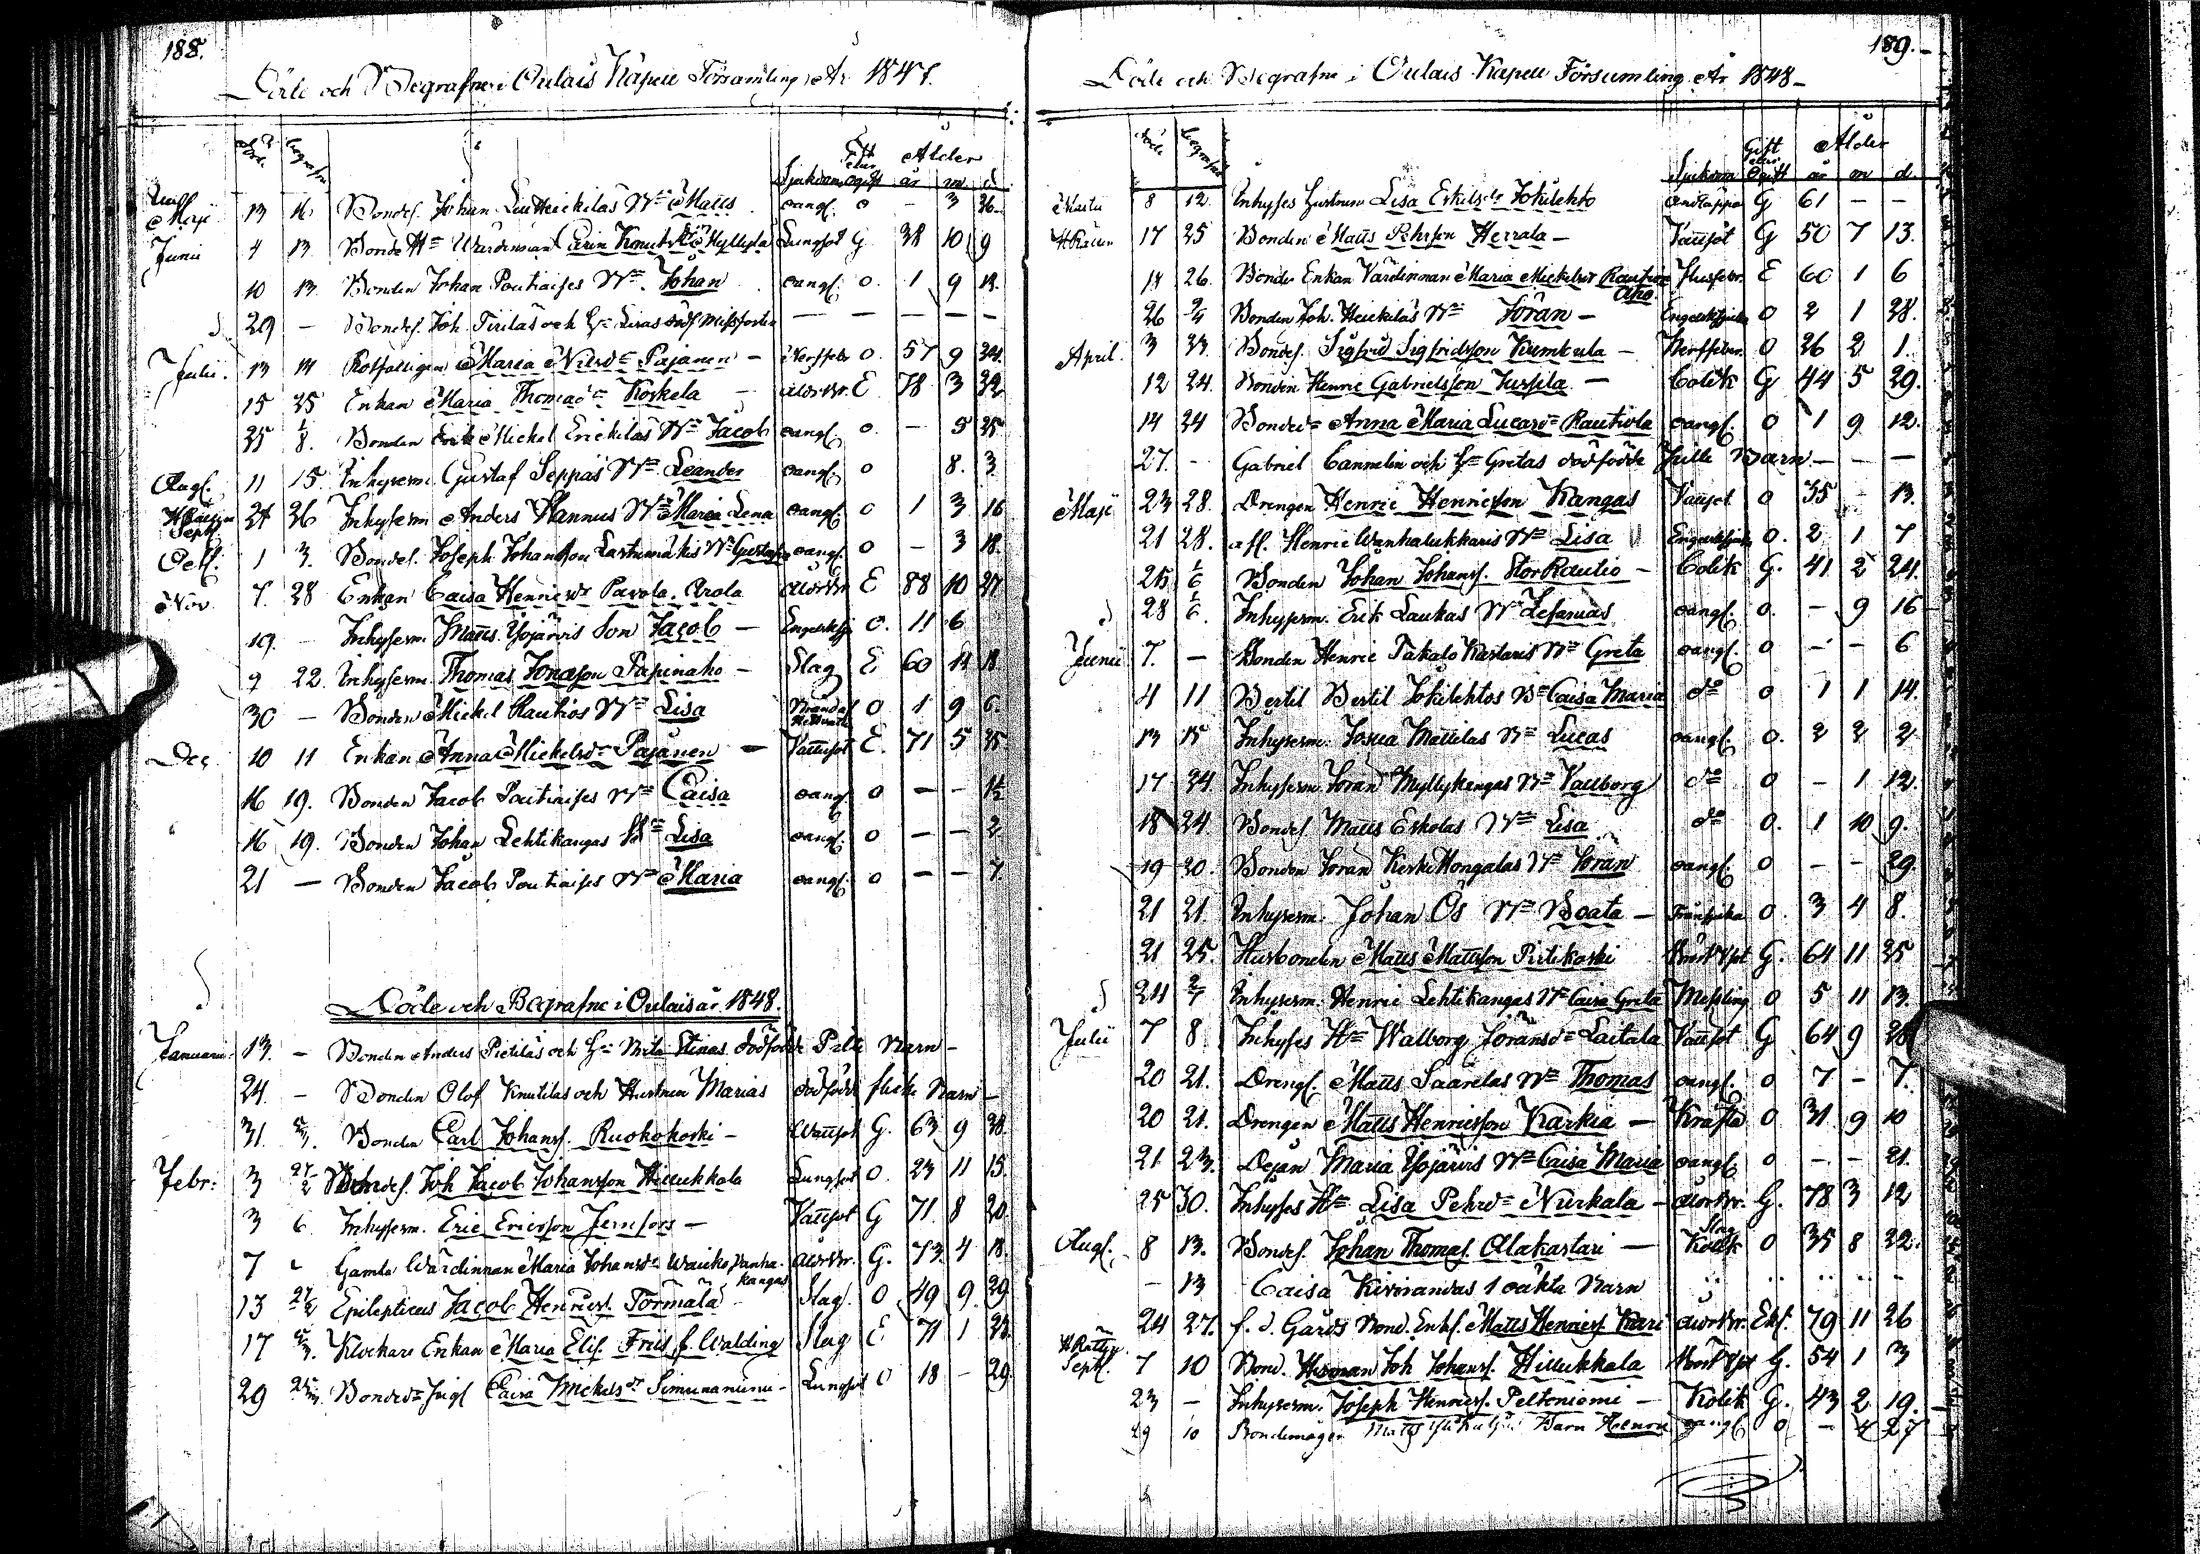 188.
Döde och Begrafne i Oulais Kapell Församling År 1847.
Döde begrafne Sjukdom Gift eller Ogift Ålder år m d
Maji 13 16 Bondes. Johan Heickilas Bn Matts oangf. o - 3 26
Junii 4 13 Bonde Hu Wärdinnan Carin Knutsdr Myllylä Lungsot G 38 10 9
10 13 Bonden Johan Poutiaises Bn Johan oangf. o. 1 9 18.
29 - Bondes. Joh. Tirilas och Hu Liisas missfoster - - - -
Julii. 13 14 Rotfattigen Maria Nilsdr Pajanen - Nerffeber o. 57 9 24
15 25 Enkan Maria Thomasdr Koskela - ålderkr. E 78 3 22
25 1/8. Bonden Erik Michel Erickilas Bn Jacob oangf. o. - 5 25
Augs. 11 15. Inhysesm. Gustaf Seppäs Bn Leander oangf. o 8. 3
Sept. 24 26 Inhysesm Anders Hannus Bn Maria Lena oangf. o 1 3 16
Octb. 1 3. Bondes. Joseph Johansson Bn Gustafva oangf. o - 3 18.
Nov. 7. 28 Enkan Caisa Henricsdr Pavola. Arola ålderkr E 88 10 27
19. - Inhysesm. Matts Yojärvis Son Jacob - Engelsksj. o. 11 6
9 22. Inhysesm. Thomas Jonasson Papinaho - Slag E 60 11 18.
30 - Bonden Mickel Rautios Bn Lisa o 1 9 6.
Dec. 10 11 Enkan Anna Mickelsdr Pajanen - Vattusot E. 71 5 25
16 19. Bonden Jacob Poutiaises Bn Caisa oangf. o - - 1½
16 19. Bonden Johan Lehtikangas Bn Lisa oangf. o - - 2
21 - Bonden Jacob Poutiaises Bn Maria oangf. o - - 7.
Döde och Begrafne i Oulais år 1848.
Januarii 13. - Bonden Anders Pietiläs och Hu Brita Stinas dödfödde Pilte Barn -
24. - Bonden Olof Knutilas och Hustrun Marias dödfödde flicke Barn -
31. Bonden Carl Johans. Ruokokoski - Wattusot G. 63 9 28
Febr: 3 27/2 Bondes. Joh Jacob Johansson Hillukkala Lungsot O. 23 11 15.
3 6 Inhysesm. Eric Ericsson Jernfors - Vattusot G 71 8 20
7 Gamla Wärdinnan Maria Johansdr Vanhakangas ålderkr. G. 73. 4 18.
13 27/2 Epilepticus Jacob Henrics. Törmälä Slag. O 49 9. 29
17 Klockare Enkan Maria Elis. Friis f. Walding Slag E 71 1 23.
29 Bondedr Pigl Caisa Mickelsdr Simunaniemi - Lungsot O 18 - 29.
189.
Döde och Begrafne i Oulais Kapell Församling År 1848
Döde begrafne Sjukdom Gift eller Ogift Ålder år m d
Martii 8 12. Inhyses hustrun Lisa Eriksdr Jokilehto Andtäppa G 61 - -
17 25 Bonden Matts Pehrson Herrala - Vattusot G 50 7 13.
18 26. Bonde Enkan Värdinnan Maria Mickelsdr Rautio Aho. Flussfebr. E 60 1 6
26 2/4 Bonden Joh. Heickilas Bn Göran - Engelsksjuka O 2 1 28.
April. 3 23. Bondes. Sigfrid Sigfridsson Kumpula - Nerffeber. O 26 2 1.
12 24. Bonden Henric Gabrielsson Jussila - Colik G 44 5 29.
14 24 Bondedr Anna Maria Lucasdr Rautiola oangf. O 1 9 12.
27. - Gabriel Cannelin och Hu Gretas dödfödde Pilte Barn - - -
Maji 23 28. Drengen Henric Henricsson Kangas Vattusot o 35 - 13.
21 28. aff. Henric Wanhalukkaris Bn Lisa Engelsksjuka o. 2 1 7
25 1/6 Bonden Johan Johans. StorRautio - Colik G. 41 2 24.
28 1/6. Inhysesm. Erik Laukas Bn Zefanias oangf. o. - 9 16
Junii 7. - Bonden Henric Takalo Kastaris Bn Greta oangf. o - - 6
4 11 Bertil Bertil Jokilehtos Bn Caisa Maria do o 1 1 14.
13 15 Inhysesm. Josua Mattilas Bn Lucas oangf. o. 2 2 2
17 24. Inhysesm. Göran Myllykangas Bn Vallborg do o - 1 12.
18 24. Bondes. Matts Eskolas Bn Lisa do o. 1 10 9.
19 20. Bonden Göran KeskiHongalas Bn Göran oangf. o - - 29.
21 21. Inhysesm. Johan Ös Bn Beata - o. 3 4 8.
21 25. Husbonden Matts Mattsson Pirtikoski G. 64 11 25
24 2/7 Inhysesm. Henric Lehtikangas Bn Caisa Greta Messling o 5 11 13.
Julii 7 8. Inhyses Hu Walborg Göransdr Laitala Vattusot G 64 9 28
20 21. Drengs. Matts Saarelas Bn Thomas oangf. o 7 - 7.
20 21. Drengen Matts Henricsson Karkia - Kräfta O 31 9 10
21 23. Pigan Maria Yojärvis Bn Caisa Maria oangf. o - - 21.
25 30. Inhyses Hu Lisa Pehrsdr Nurkala - ålderkr. G. 78 3 12
Augs. 8 13. Bondes. Johan Thomas. Alakastari - Slag Kolik O 35 8 22.
- 13 Caisa Kivirandas 1 oäkta Barn
24 27. f. d. Gårds Bond. Enkl. Matts Henrics Kari ålderkr. Enkl. 79 11 26
Sept. 7 10 Bond. Herman Joh Johans. Hillukkala G. 54 1 3
23 - Inhysesm. Joseph Henrics. Peltoniemi - Kolik G. 43 2 19.
29 10 Bondemågen Matts Barn Henric oangf. o - 4 27